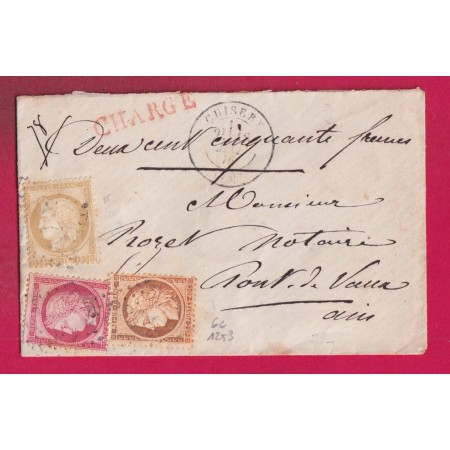 CHARGE
CUISERY
78
Deux cent cinquante francs
Monsieur
Rozet Notaire
Pont-de-Vaux
ain
GC
1253